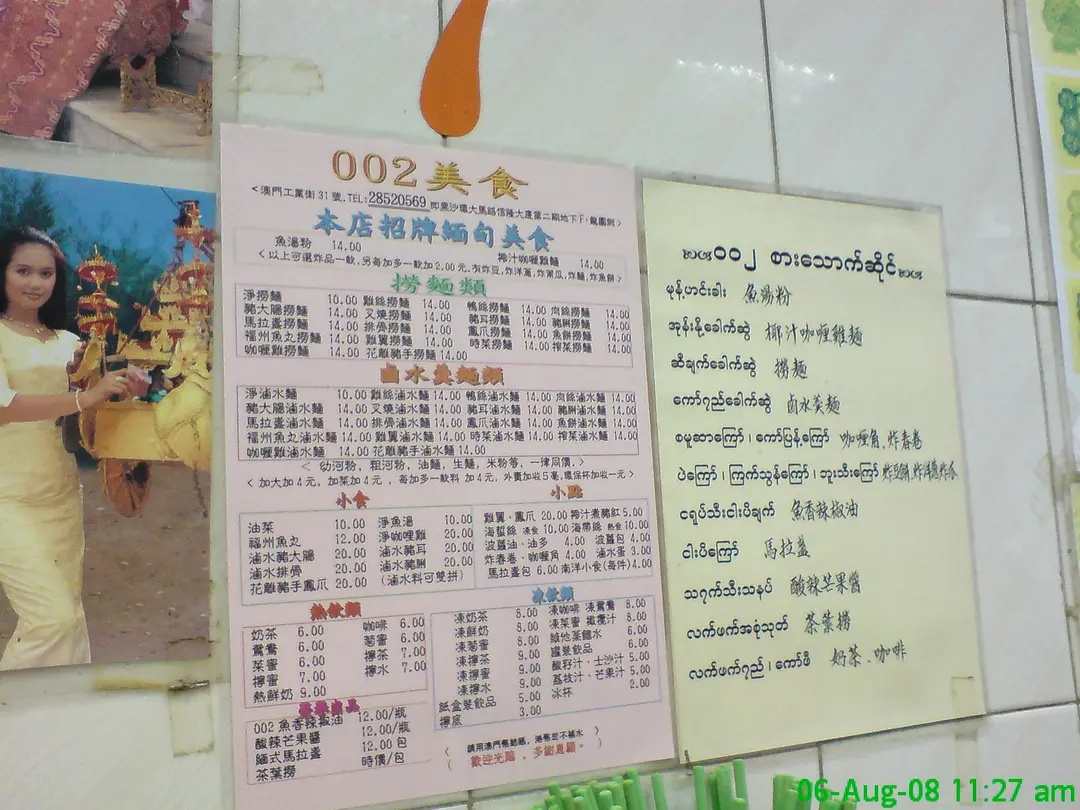 002美食
<澳門工業街31號.TEL:28520569 即黑沙環大馬路信隆大廈第二期地下F·龍園側>
本店招牌緬甸美食
魚湯粉 14.00 椰汁咖喱雞麵 14.00
<以上可選炸品一款,另每加多一款加2.00元.有炸豆,炸洋蔥,炸菜瓜,炸麵,炸魚餅>
撈麵類
淨撈麵 10.00 雞絲撈麵 14.00 鴨絲撈麵 14.00 肉絲撈麵 14.00
豬大腸撈麵 14.00 叉燒撈麵 14.00 豬耳撈麵 14.00 豬脷撈麵 14.00
馬拉盞撈麵 14.00 排骨撈麵 14.00 鳳爪撈麵 14.00 魚餅撈麵 14.00
福州魚丸撈麵 14.00 雞翼撈麵 14.00 時菜撈麵 14.00 榨菜撈麵 14.00
咖喱雞撈麵 14.00 花雕豬手撈麵 14.00
鹵水羹麵類
淨滷水麵 10.00 雞絲滷水麵 14.00 鴨絲滷水麵 14.00 肉絲滷水麵 14.00
豬大腸滷水麵 14.00 叉燒滷水麵 14.00 豬耳滷水麵 14.00 豬脷滷水麵 14.00
馬拉盞滷水麵 14.00 排骨滷水麵 14.00 鳳爪滷水麵 14.00 魚餅滷水麵 14.00
福州魚丸滷水麵 14.00 雞翼滷水麵 14.00 時菜滷水麵 14.00 榨菜滷水麵 14.00
咖喱雞滷水麵 14.00 花雕豬手滷水麵 14.00
< 幼河粉,粗河粉,油麵,生麵,米粉等,一律同價,>
< 加大加4元,加菜加4元,每加多一款料 加4元,外賣加收5毫,環保杯加收一元>
小食
油菜 10.00 淨魚湯 10.00
福州魚丸 12.00 淨咖喱雞 20.00
滷水豬大腸 20.00 滷水豬耳 20.00
滷水排骨 20.00 滷水豬脷 20.00
花雕豬手鳳爪 20.00 (滷水料可雙拼)
小點
雞翼·鳳爪 20.00 椰汁煮豬紅 5.00
海蜇絲 凍食 10.00 海帶絲 熱食 10.00
菠蘿油·油多 4.00 菠蘿包 4.00
炸春卷·咖喱角 4.00 滷水蛋 3.00
馬拉盞包 6.00 南洋小食(每件)4.00
熱飲類
奶茶 6.00 咖啡 6.00
鴛鴦 6.00 菊蜜 6.00
菜蜜 6.00 檸茶 7.00
檸蜜 7.00 檸水 7.00
熱鮮奶 9.00
凍飲類
凍奶茶 8.00 凍咖啡 凍鴛鴦 8.00
凍鮮奶 8.00 凍菜蜜 橄欖汁 8.00
凍菊蜜 8.00 維他茶餾水 6.00
凍檸茶 9.00 罐裝飲品 6.00
凍檸蜜 9.00 酸籽汁·士沙汁 5.00
凍檸水 9.00 荔枝汁·芒果汁 5.00
紙盒裝飲品 5.00 冰杯 2.00
檸底 3.00
002魚香辣椒油 12.00/瓶
酸辣芒果醬 12.00/瓶
緬式馬拉盞 12.00 包
茶葉撈 時價/包
歡迎光臨,多謝惠顧。
၀၀၂ စားသောက်ဆိုင်
မုန့်ဟင်းခါး 魚湯粉
အုန်းနို့ခေါက်ဆွဲ 椰汁咖喱雞麵
ဆီချက်ခေါက်ဆွဲ 撈麵
ကော်ရည်ခေါက်ဆွဲ 鹵水羹麵
စမူဆာကြော်၊ကော်ပြန့်ကြော် 咖喱角.炸春卷
ပဲကြော်၊ကြက်သွန်ကြော်၊ဘူးသီးကြော်
ငရုပ်သီးငါးပိချက် 魚香辣椒油
ငါးပိကြော် 馬拉盞
သရက်သီးသနပ် 酸辣芒果醬
လက်ဖက်အစုံသုတ် 茶葉撈
လက်ဖက်ရည်၊ကော်ဖီ 奶茶.咖啡
06-Aug-08 11:27 am